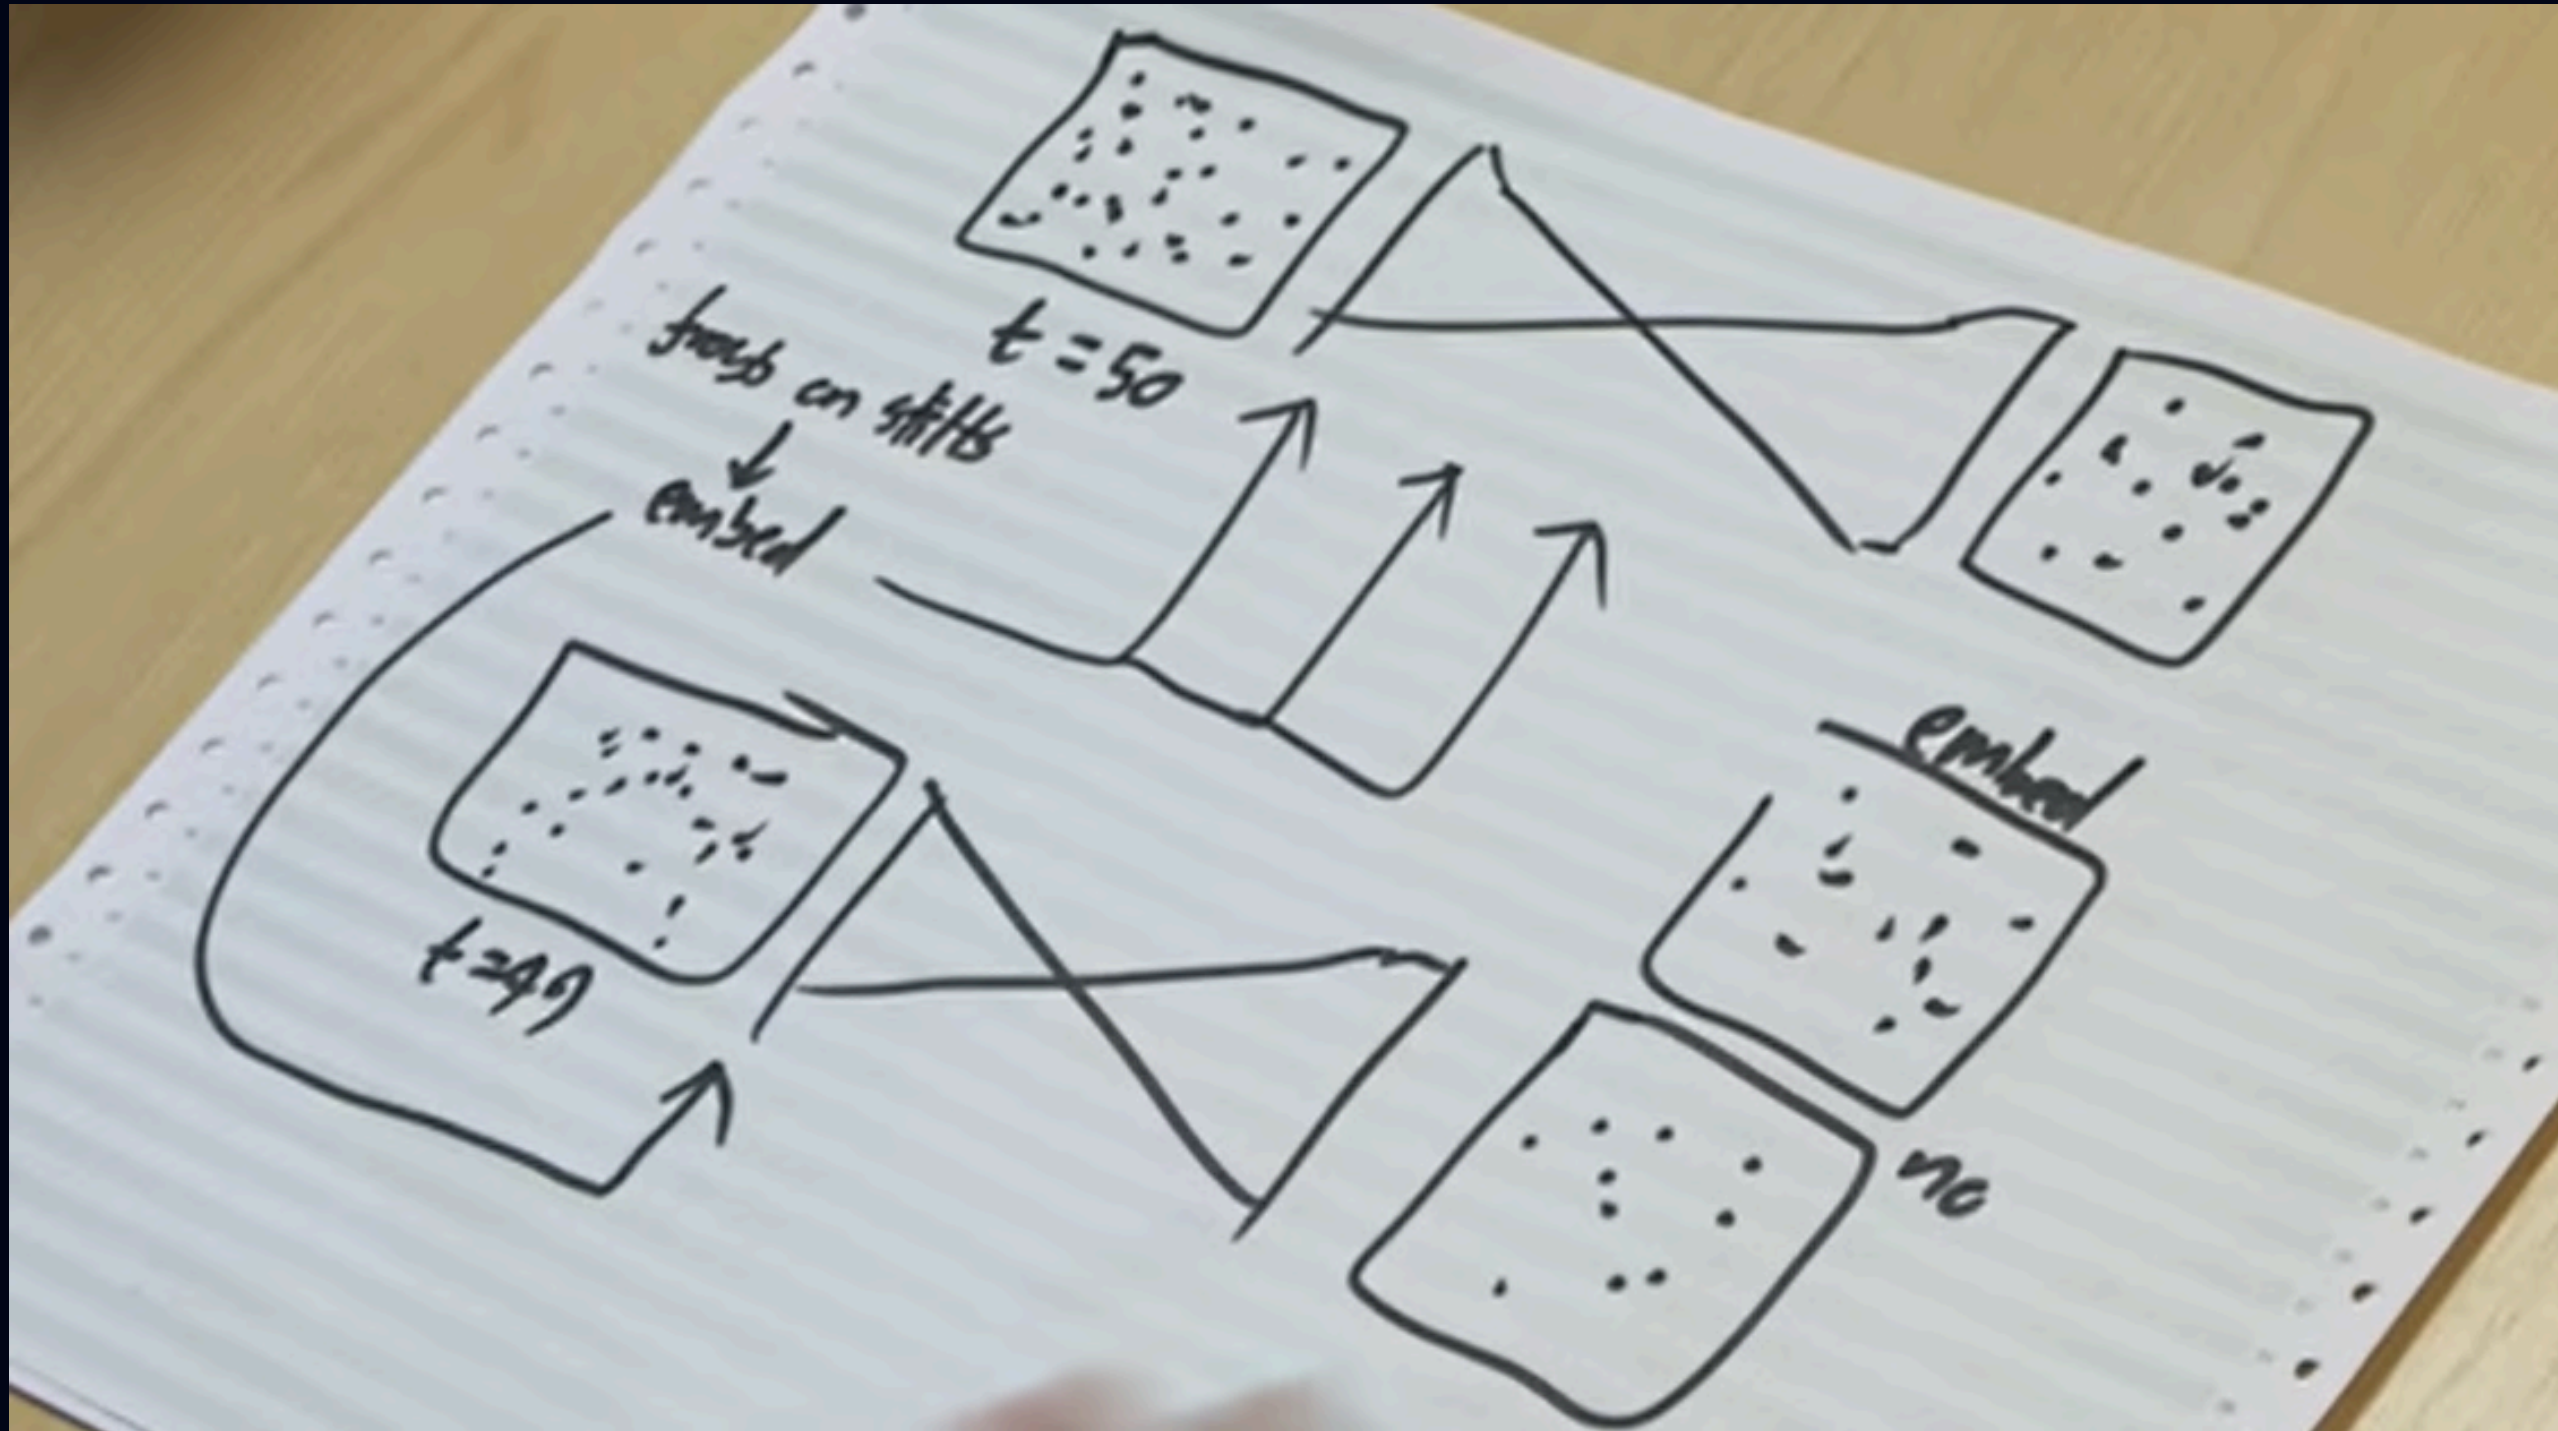 t = 50
frogs on stilts
embed
embed
t = 49
no